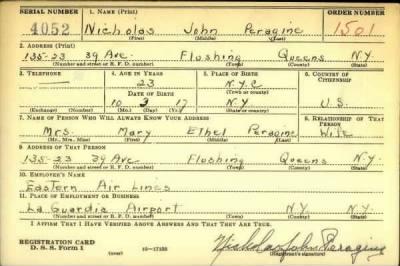 SERIAL NUMBER 1. NAME (Print) ORDER NUMBER
4052 Nicholas John Peragine 1501
(First) (Middle) (Last)
2. ADDRESS (Print)
135-23 39 Ave. Flushing Queens N.Y.
(Number and street or R. F. D. number) (Town) (County) (State)
3. TELEPHONE 4. AGE IN YEARS 5. PLACE OF BIRTH 6. COUNTRY OF CITIZENSHIP
— 23 N.Y.C
DATE OF BIRTH (Town or county)
10 3 17 N.Y U.S.
(Exchange) (Number) (Mo.) (Day) (Yr.) (State or country)
7. NAME OF PERSON WHO WILL ALWAYS KNOW YOUR ADDRESS 8. RELATIONSHIP OF THAT PERSON
Mrs. Mary Ethel Peragine Wife
(Mr., Mrs., Miss) (First) (Middle) (Last)
9. ADDRESS OF THAT PERSON
135-23 39 Ave Flushing Queens N.Y.
(Number and street or R. F. D. number) (Town) (County) (State)
10. EMPLOYER'S NAME
Eastern Air Lines
11. PLACE OF EMPLOYMENT OR BUSINESS
La Guardia Airport N.Y. N.Y.
(Number and street or R. F. D. number) (Town) (County) (State)
I AFFIRM THAT I HAVE VERIFIED ABOVE ANSWERS AND THAT THEY ARE TRUE.
REGISTRATION CARD
D. S. S. Form 1 (over) 16—17105 Nicholas John Peragine
(Registrant's signature)